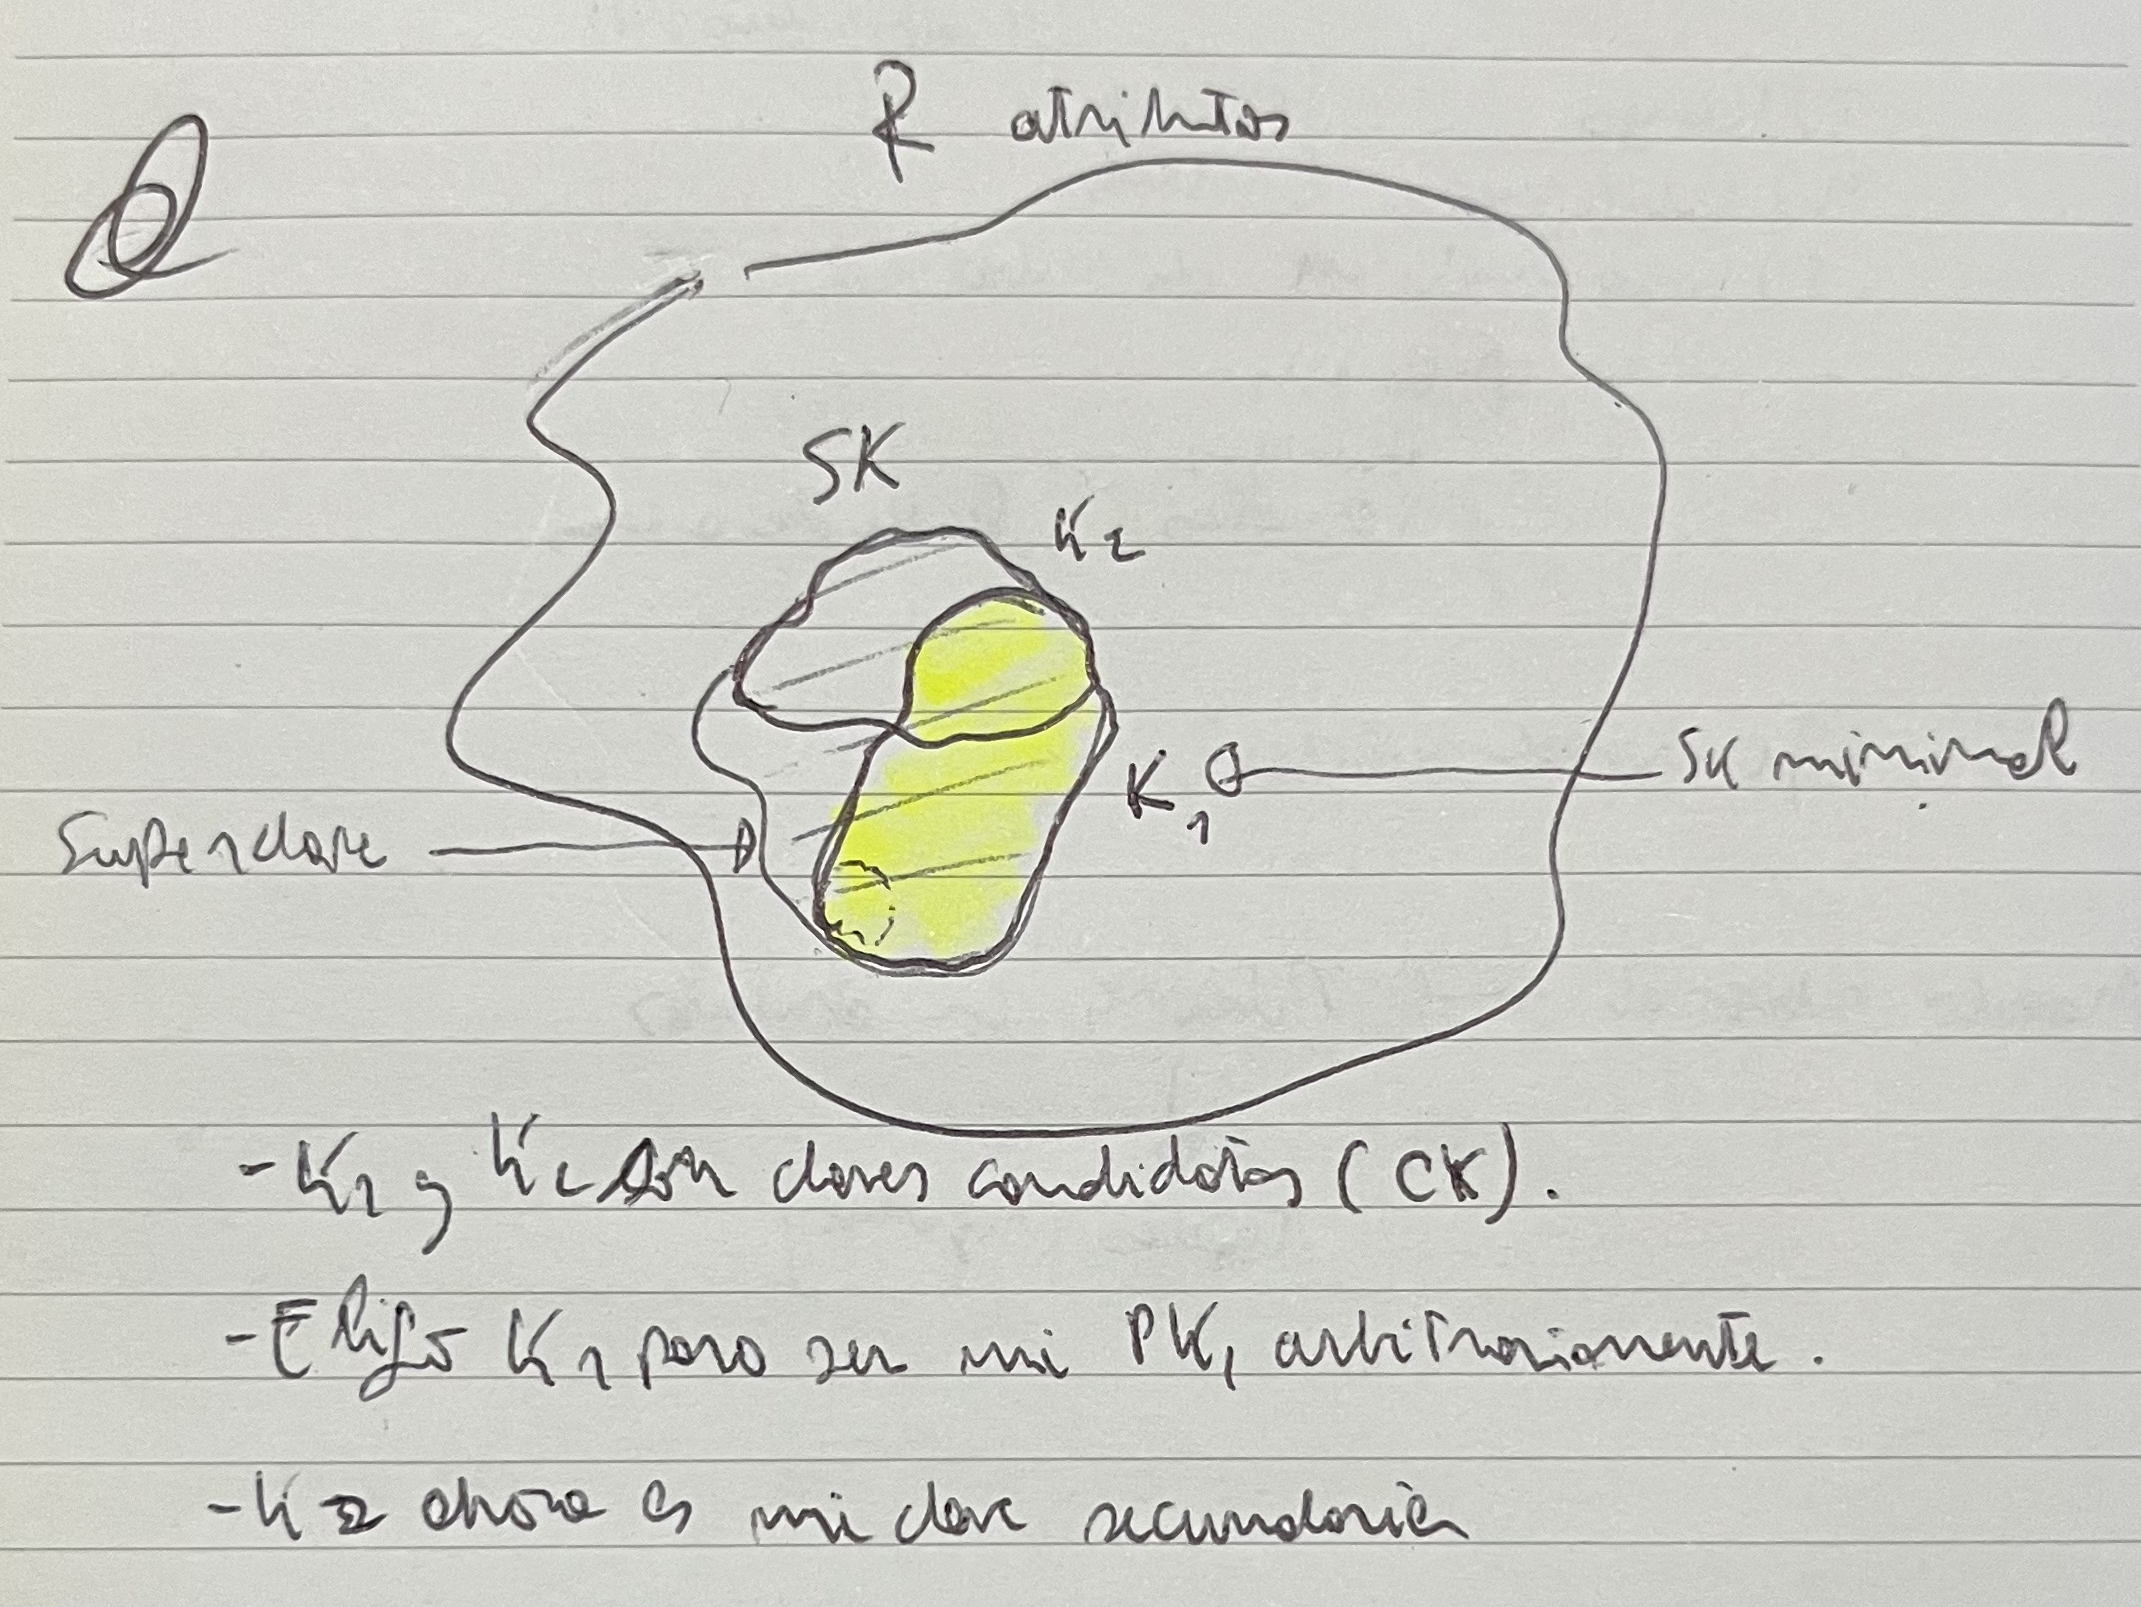 R atributos
SK
K2
K1
SK minimal
Superclave
- K1 y K2 son claves candidatas (CK).
- Elijo K1 para ser mi PK, arbitrariamente.
- K2 ahora es mi clave secundaria